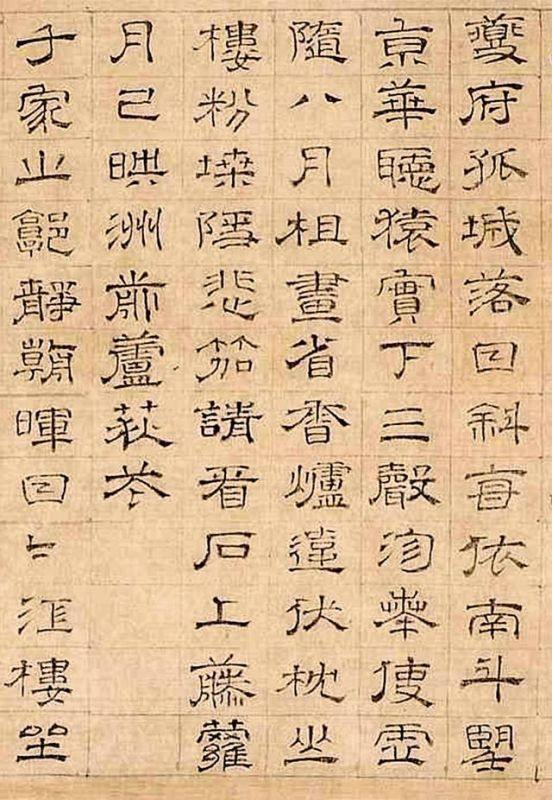 夔府孤城落日斜每依南斗朢
京華聽猿實下三聲淚奉使虛
隨八月柤畫省香爐違伏枕山
樓粉堞隱悲笳請看石上藤蘿
月已暎洲前蘆荻花
千家山郭靜朝暉日〻江樓坐